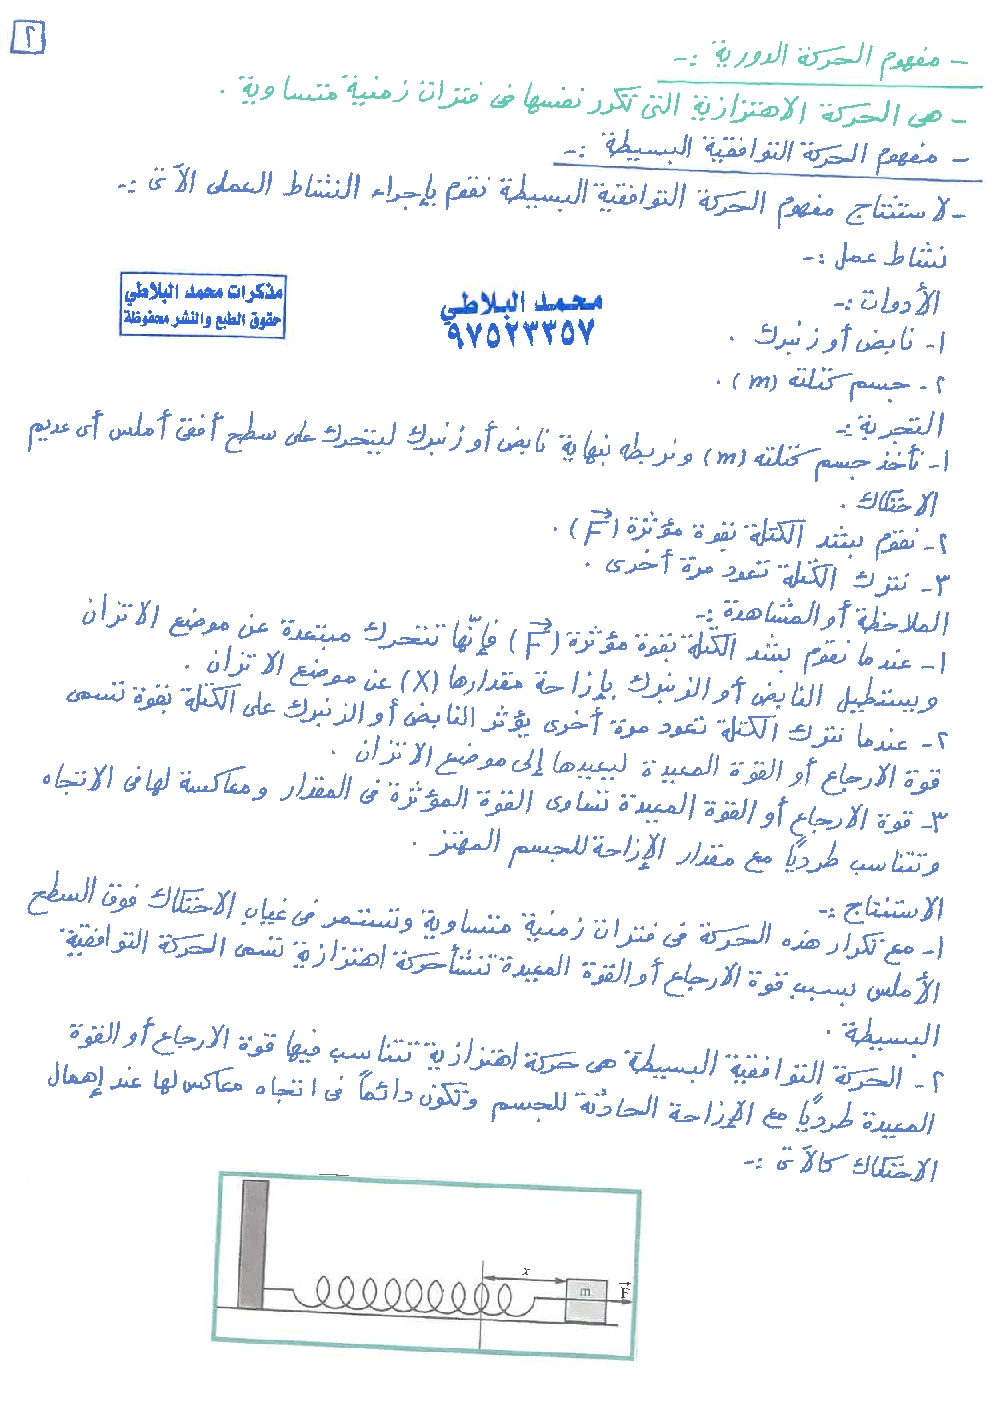 ٢
- مفهوم الحركة الدورية :-
- هى الحركة الاهتزازية التى تكرر نفسها فى فترات زمنية متساوية .
- مفهوم الحركة التوافقية البسيطة :-
- لاستنتاج مفهوم الحركة التوافقية البسيطة نقوم بإجراء النشاط العملى الآتى :-
نشاط عمل :-
مذكرات محمد البلاطي
حقوق الطبع والنشر محفوظة
محمد البلاطي
٩٧٥٢٣٣٥٧
الأدوات :-
١- نابض أو زنبرك .
٢- جسم كتلته (m) .
التجربة :-
١- نأخذ جسم كتلته (m) ونربطه بنهاية نابض أو زنبرك ليتحرك على سطح أفقى أملس أى عديم
الاحتكاك .
٢- نقوم بشد الكتلة بقوة مؤثرة (F⃗) .
٣- نترك الكتلة تعود مرة أخرى .
الملاحظة أو المشاهدة :-
١- عندما نقوم بشد الكتلة بقوة مؤثرة (F⃗) فإنّها تتحرك مبتعدة عن موضع الاتزان
ويستطيل النابض أو الزنبرك بإزاحة مقدارها (X) عن موضع الاتزان .
٢- عندما نترك الكتلة تعود مرة أخرى يؤثر النابض أو الزنبرك على الكتلة بقوة تسمى
قوة الارجاع أو القوة المعيدة ليعيدها إلى موضع الاتزان .
٣- قوة الارجاع أو القوة المعيدة تساوى القوة المؤثرة فى المقدار ومعاكسة لها فى الاتجاه
وتتناسب طرديًا مع مقدار الإزاحة للجسم المهتز .
الاستنتاج :-
١- مع تكرار هذه الحركة فى فترات زمنية متساوية وتستمر فى غياب الاحتكاك فوق السطح
الأملس بسبب قوة الارجاع أو القوة المعيدة تنشأ حركة اهتزازية تسمى الحركة التوافقية
البسيطة .
٢- الحركة التوافقية البسيطة هى حركة اهتزازية تتناسب فيها قوة الارجاع أو القوة
المعيدة طرديًا مع الإزاحة الحادثة للجسم وتكون دائماً فى اتجاه معاكس لها عند إهمال
الاحتكاك كالآتى :-
x
m
F⃗